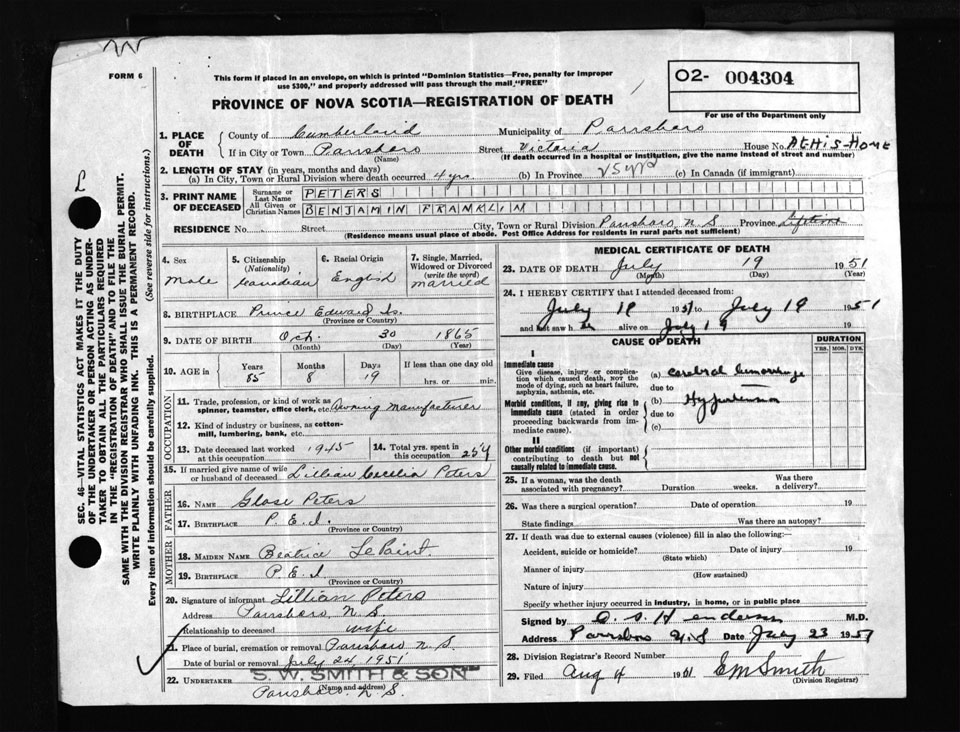 FORM 6
This form if placed in an envelope, on which is printed "Dominion Statistics—Free, penalty for improper
use $300," and properly addressed will pass through the mail "FREE"
O2- 004304
For use of the Department only
PROVINCE OF NOVA SCOTIA—REGISTRATION OF DEATH
1. PLACE OF DEATH
County of Cumberland Municipality of Parrsboro
If in City or Town Parrsboro Street Victoria House No. At His-Home
(Name) (If death occurred in a hospital or institution, give the name instead of street and number)
2. LENGTH OF STAY (in years, months and days)
(a) In City, Town or Rural Division where death occurred 4 yrs (b) In Province (c) In Canada (if immigrant)
3. PRINT NAME OF DECEASED
Surname or Last Name PETERS
All Given or Christian Names BENJAMIN FRANKLIN
RESIDENCE No. Street City, Town or Rural Division Parrsboro N.S Province
(Residence means usual place of abode. Post Office Address for residents in rural parts not sufficient)
4. Sex Male
5. Citizenship (Nationality) Canadian
6. Racial Origin English
7. Single, Married, Widowed or Divorced (write the word) married
8. BIRTHPLACE Prince Edward Is.
(Province or Country)
9. DATE OF BIRTH Oct. 30 1865
(Month) (Day) (Year)
10. AGE in Years 85 Months 8 Days 19 If less than one day old hrs. or min.
OCCUPATION
11. Trade, profession, or kind of work as
spinner, teamster, office clerk, etc. Awning Manufacturer
12. Kind of industry or business, as cotton-
mill, lumbering, bank, etc.
13. Date deceased last worked at this occupation 1945
14. Total yrs. spent in this occupation 25 y
15. If married give name of wife or husband of deceased Lillian Cecelia Peters
FATHER
16. NAME Peters
17. BIRTHPLACE P.E.I.
(Province or Country)
MOTHER
18. MAIDEN NAME Beatrice
19. BIRTHPLACE P.E.I
(Province or Country)
20. Signature of informant Lillian Peters
Address Parrsboro, N.S.
Relationship to deceased wife
21. Place of burial, cremation or removal Parrsboro N.S.
Date of burial or removal July 24, 1951
22. UNDERTAKER S. W. SMITH & SON
(Name and address)
Parrsboro, N.S.
MEDICAL CERTIFICATE OF DEATH
23. DATE OF DEATH July 19 1951
(Month) (Day) (Year)
24. I HEREBY CERTIFY that I attended deceased from:
July 19 1951 to July 19 1951
and last saw h alive on July 19 19
CAUSE OF DEATH
DURATION
YRS. MOS. DYS.
I
Immediate cause
Give disease, injury or compli-
cation which caused death, NOT the
mode of dying, such as heart failure,
asphyxia, asthenia, etc.
(a) cerebral hemorrhage
due to
Morbid conditions, if any, giving rise to
immediate cause (stated in order
proceeding backwards from im-
mediate cause).
(b) Hypertension
due to
(c)
II
Other morbid conditions (if important)
contributing to death but not
causally related to immediate cause.
25. If a woman, was the death
associated with pregnancy? Duration weeks. Was there a delivery?
26. Was there a surgical operation? Date of operation 19
State findings Was there an autopsy?
27. If death was due to external causes (violence) fill in also the following:
Accident, suicide or homicide? Date of injury 19
(State which)
Manner of injury
(How sustained)
Nature of injury
Specify whether injury occurred in industry, in home, or in public place
Signed by Henderson M.D.
Address Parrsboro N.S Date July 23 1951
28. Division Registrar's Record Number
29. Filed Aug 4 19 51 Smith
(Division Registrar)
SEC. 46—VITAL STATISTICS ACT MAKES IT THE DUTY
OF THE UNDERTAKER OR PERSON ACTING AS UNDER-
TAKER TO OBTAIN ALL THE PARTICULARS REQUIRED
IN THE "REGISTRATION OF DEATH" AND TO FILE THE
SAME WITH THE DIVISION REGISTRAR WHO SHALL ISSUE THE BURIAL PERMIT.
WRITE PLAINLY WITH UNFADING INK. THIS IS A PERMANENT RECORD.
Every item of information should be carefully supplied. (See reverse side for instructions.)